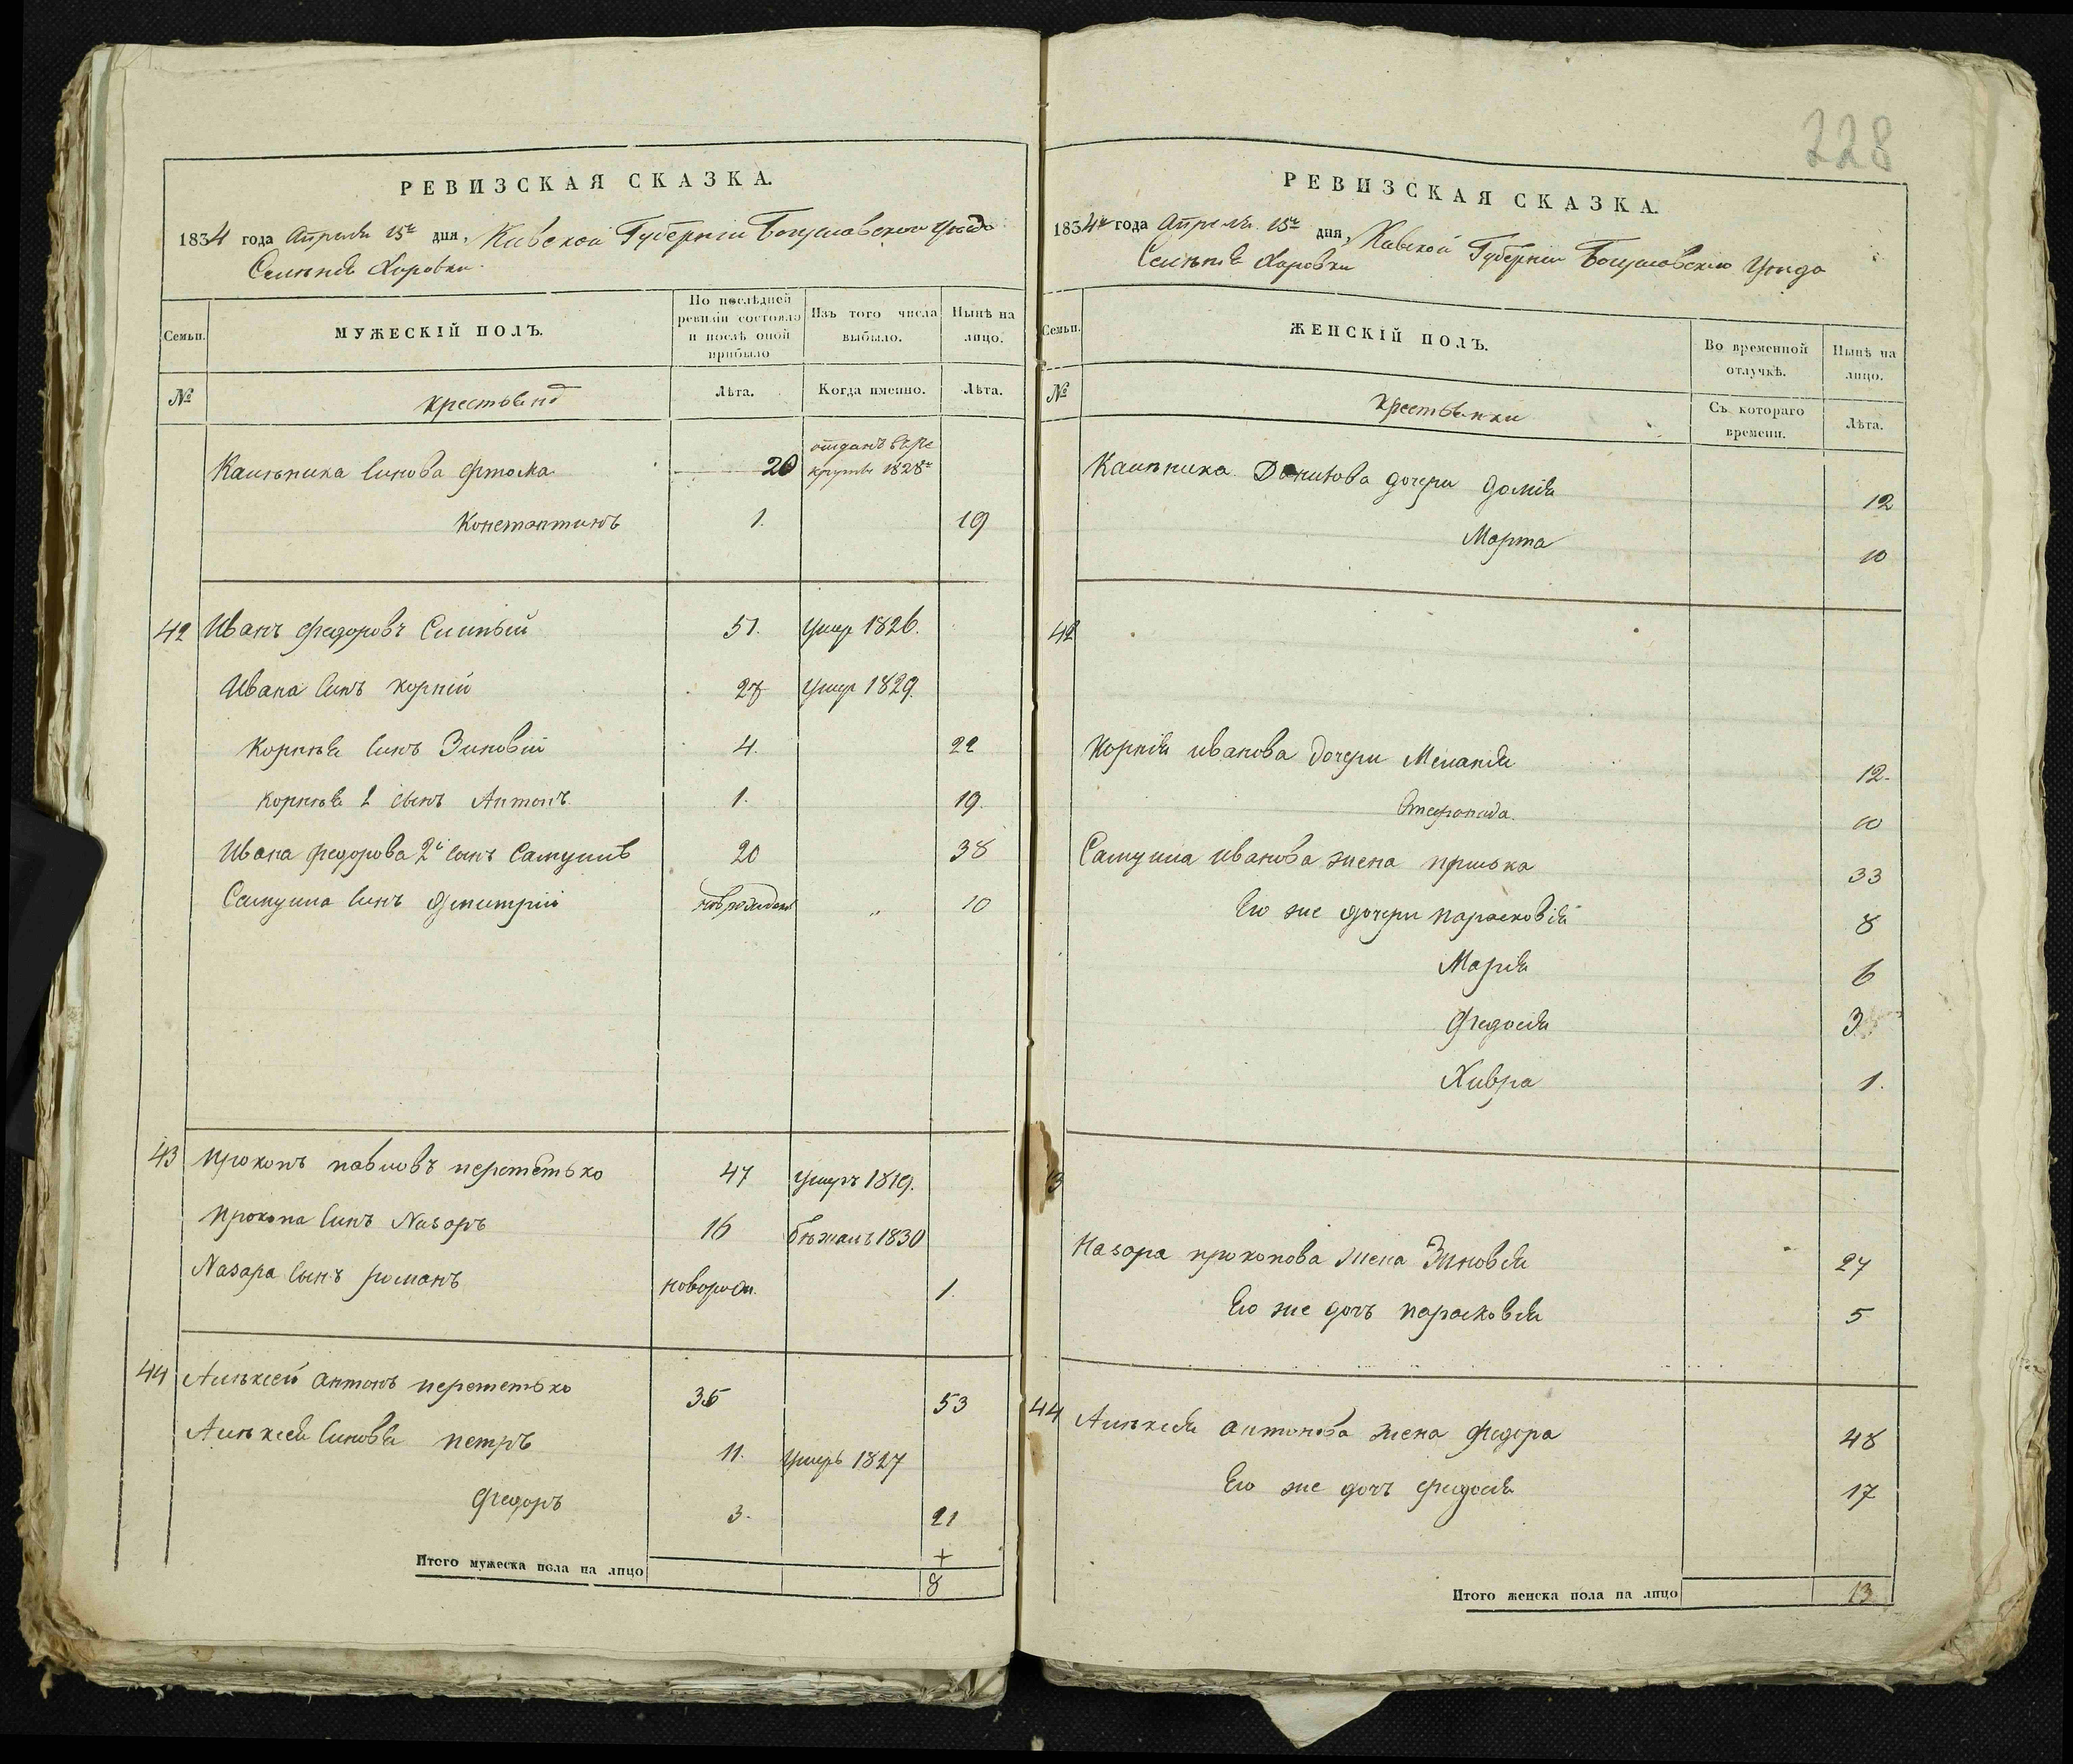 228
РЕВИЗСКАЯ СКАЗКА.
1834 года Апреля 15го дня, Киевской Губернии Богуславского Уезда
Селѣнія Харовки
Семьи.
МУЖЕСКІЙ ПОЛЪ.
По послѣдней ревизіи состояло и послѣ оной прибыло
Изъ того числа выбыло.
Нынѣ на лицо.
№
крестьянѣ
Лѣта.
Когда именно.
Лѣта.
Калѣника Синова 20 отданъ въ рекруты 1828го
Константинъ 1. 19
42 Иванъ Федоровъ 51. Умер 1826.
Ивана Синъ Корній Умер 1829.
Корнѣя Синъ Зиновій 4. 22
Корнѣя 2 сынъ Антонъ 1. 19.
Ивана Федорова 2й сынъ Самуилъ 20 38
Самуила Синъ Дмитрій новрожденъ „ 10
43 Прокопъ Павловъ Перететько 47 Умеръ 1819.
Прокопа Синъ Назаръ 16 бѣжалъ 1830
Nазара Сынъ Романъ новорож. 1.
44 Алѣксей Антонъ Перететько 35 53
Алѣксея Синовя Петръ 11. Умеръ 1827
Федоръ 3. 21
+
Итого мужеска пола на лицо 8
РЕВИЗСКАЯ СКАЗКА.
1834го года Апреля 15го дня, Киевской Губернии Богуславского Уезда
Селѣнія Харовки
Семьи.
ЖЕНСКІЙ ПОЛЪ.
Во временной отлучкѣ.
Нынѣ на лицо.
№
Крестьянки
Съ котораго времени.
Лѣта.
Калѣника Данилова дочери Домія 12
Марта 10
42
Корнія Иванова дочери Меланія 12.
Стефанида. 10
Самуила Иванова жена Приська 33
Его же дочери Парасковія 8
Марія 6
Федосія 3
Хивря 1.
43
Назара Прокопова жена Зиновія 27
Его же дочъ Парасковія 5
44 Алѣксія Антонова жена Федора 48
Его же дочъ Федосія 17
Итого женска пола на лицо 13